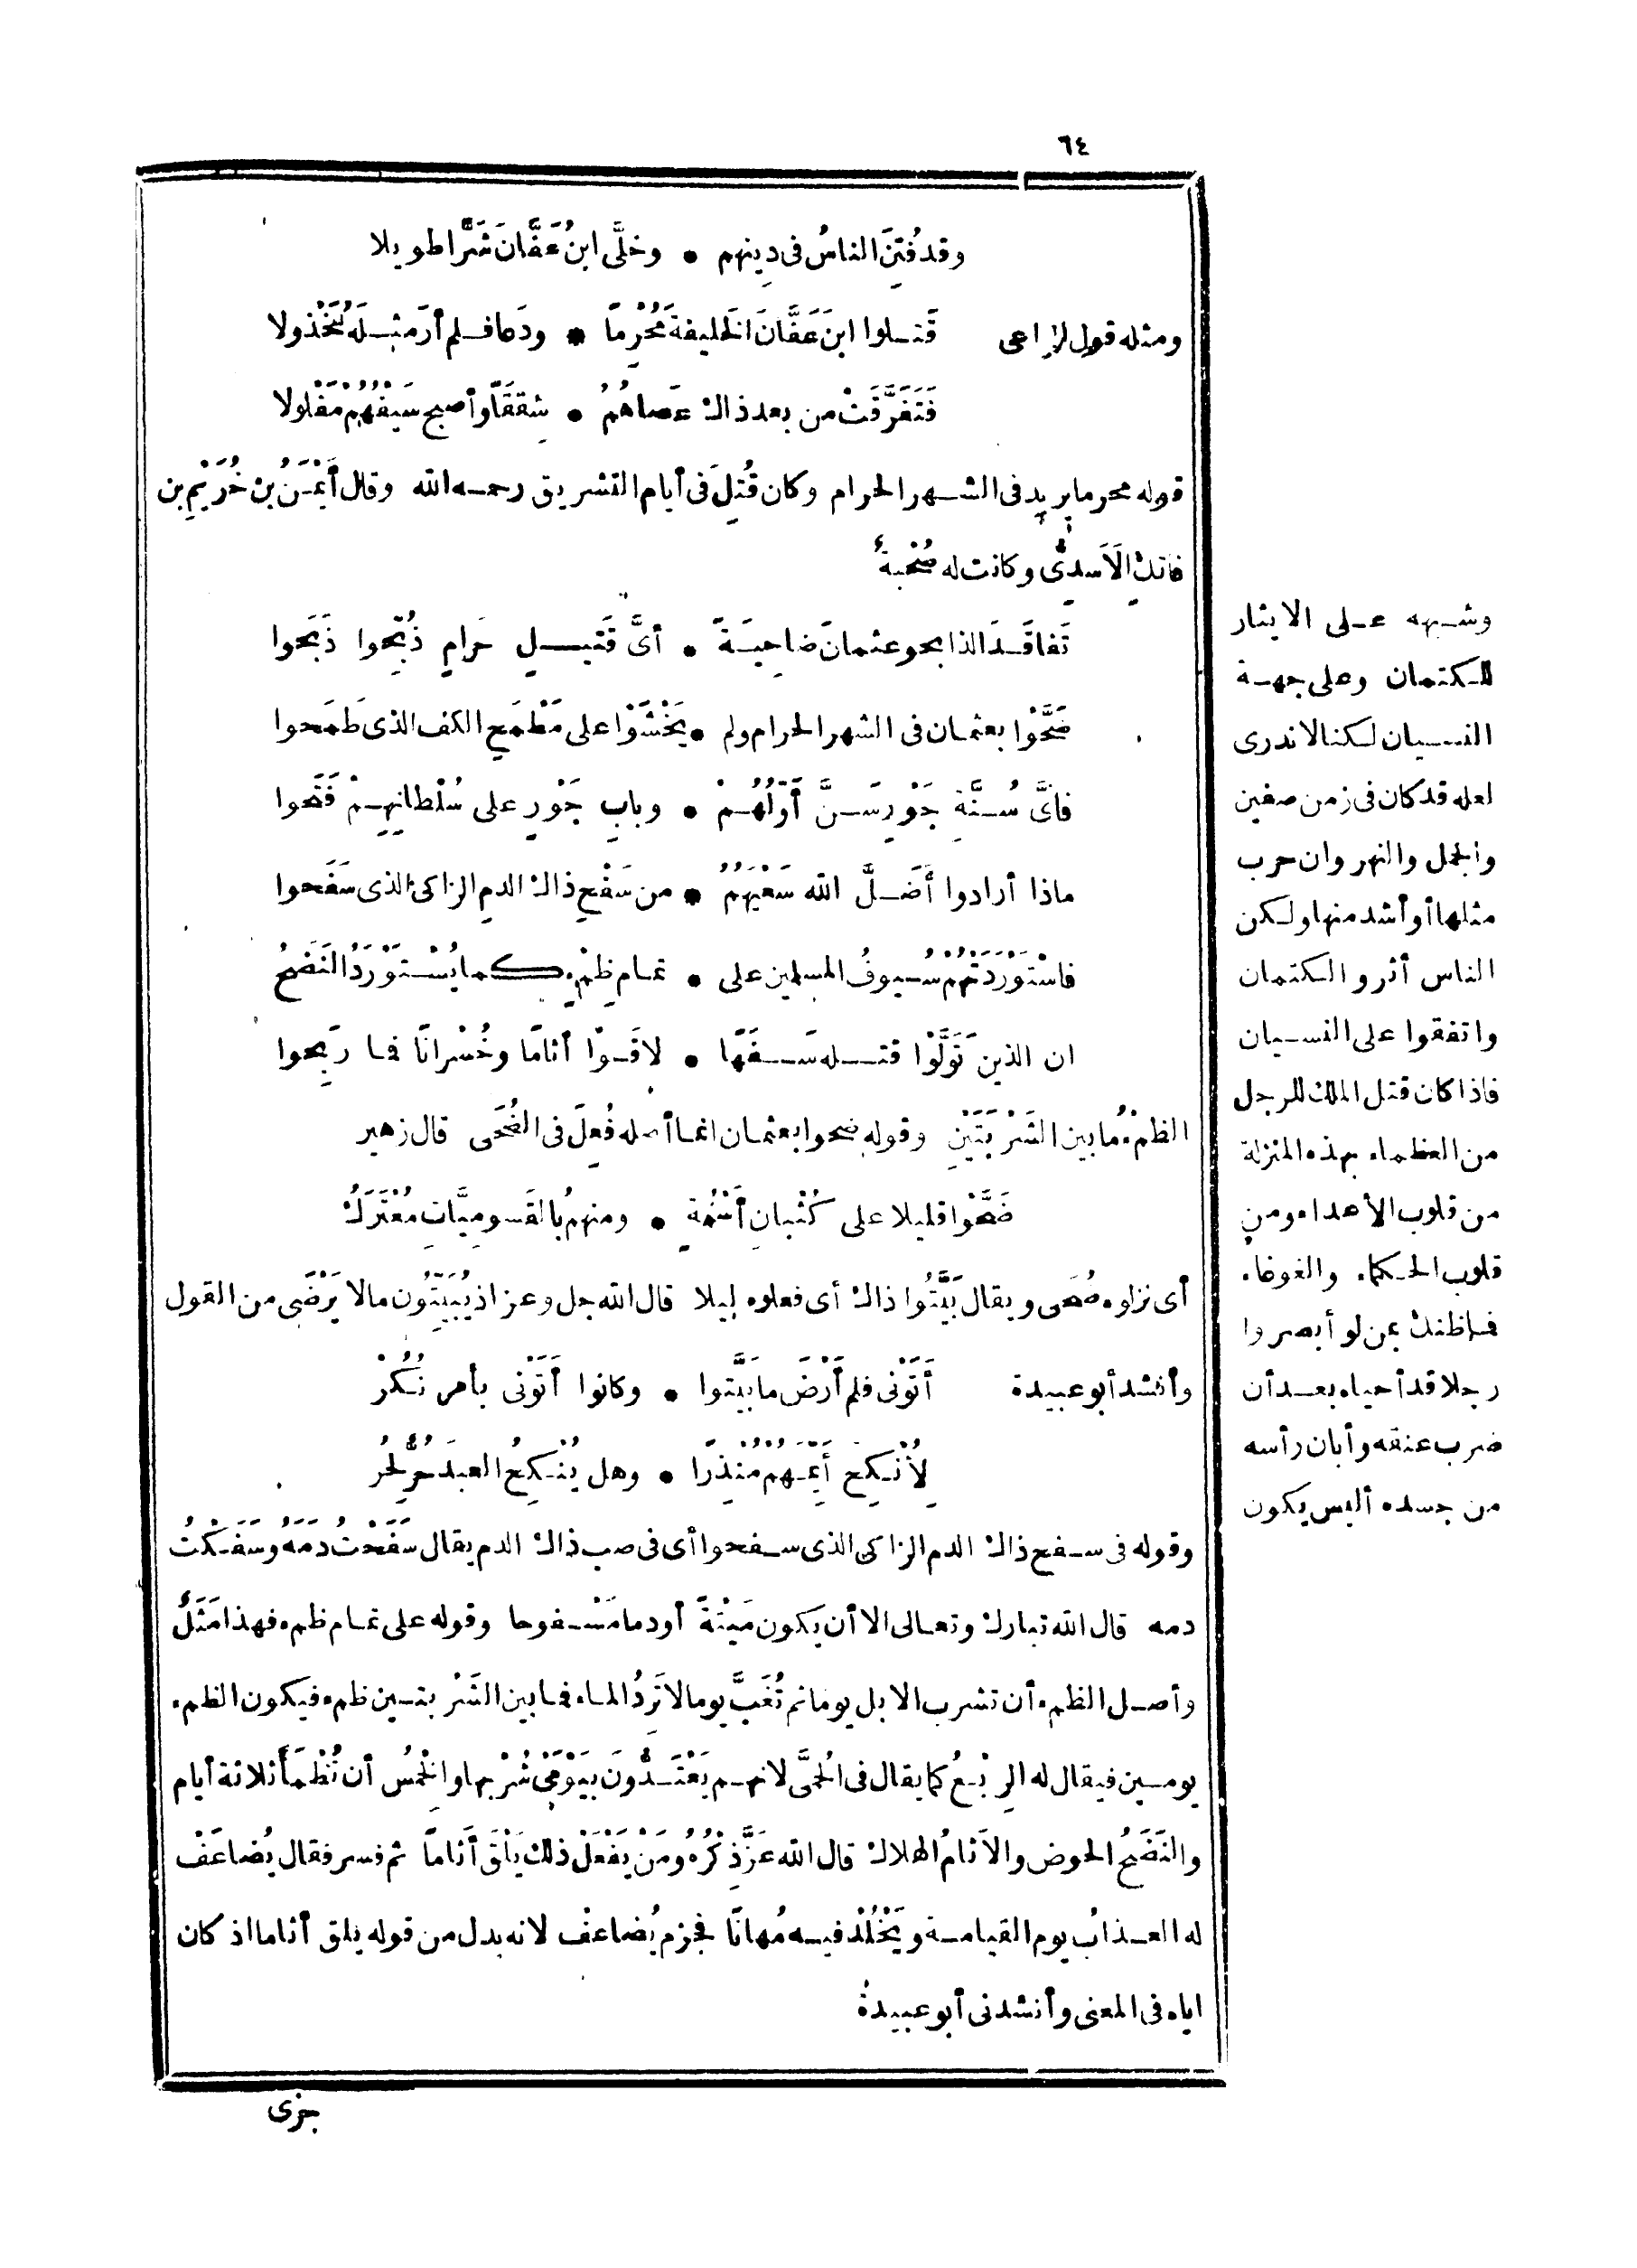 ٦٤
وقد فُتِنَ الناسُ فى دِينِهم • وخلَّى ابنُ عَفَّانَ شَرًّا طويلا
ومثله قول الراعى قَتَلوا ابنَ عَفَّانَ الخليفةَ مُحْرِمًا • ودَعا فلم أرَ مثلَهُ مَخْذولا
فَتَفَرَّقَتْ من بعد ذاك عَصاهُمُ • شِقَقًا وأصبح سَيْفُهُم مَفْلولا
قوله محرما يريد فى الشهر الحرام وكان قُتِلَ فى أيام التشريق رحمه الله وقال أَيْمَنُ بن خُرَيْمِ بن
فاتكٍ الأَسدِىُّ وكانت له صُحْبةٌ
تَفاقَدَ الذابحو عثمانَ ضاحِيَةً • أىَّ قَتيلٍ حَرامٍ ذُبِّحوا ذَبَحوا
ضَحَّوْا بعثمان فى الشهر الحرام ولم • يَخْشَوْا على مَطْمَحِ الكف الذى طَمَحوا
فأىَّ سُنَّةِ جَوْرٍ سَنَّ أَوَّلُهُمْ • وبابِ جَوْرٍ على سُلْطانِهِمْ فَتَحوا
ماذا أرادوا أَضَلَّ الله سَعْيَهُمُ • من سَفْحِ ذاك الدمِ الزاكى الذى سَفَحوا
فاسْتَوْرَدَتْهُم سُيوفُ المسلمين على • تمامِ ظِمْءٍ كما يُسْتَوْرَدُ النَضَحُ
ان الذين تَوَلَّوْا قتله سَفَهًا • لاقَوْا أثامًا وخُسْرانًا فما رَبِحوا
الظمْءُ ما بين الشَرْبَتَيْنِ وقوله ضحوا بعثمان انما أصله فُعِلَ فى الضُحَى قال زهير
ضَحَّوْا قليلا على كُثْبانِ أَسْنُمَةٍ • ومنهمُ بالقَسومِيَّاتِ مُعْتَرَكُ
أى نزلوه ضُحَى ويقال بَيَّتُوا ذاك أى فعلوه ليلا قال الله جل وعز اذ يُبَيِّتُون مالا يَرْضَى من القول
وأنشد أبو عبيدة أَتَوْنى فلم أَرْضَ ما بَيَّتوا • وكانوا أَتَوْنى بأمر نُكُرْ
لِأُنْكِحَ أَيِّمَهُم مُنْذِرًا • وهل يُنْكِحُ العبدَ حُرٌّ لِحُرْ
وقوله فى سفح ذاك الدم الزاكى الذى سفحوا أى فى صب ذاك الدم يقال سَفَحْتُ دَمَهُ وسَفَكْتُ
دمه قال الله تبارك وتعالى الا أن يكون مَيْتَةً أو دما مَسْفوحا وقوله على تمام ظمء فهذا مَثَلٌ
وأصل الظمء أن تشرب الابل يوما ثم تُغَبَّ يوما لا تَرِدُ الماء فما بين الشَرْبتين ظمء فيكون الظمء
يومين فيقال له الرِبْعُ كما يقال فى الحُمَّى لانهم يَعْتَدُّونَ بيَوْمَىْ شُرْبها والخِمْسُ أن تُظْمَأَ ثلاثة أيام
والنَضَحُ الحوض والأَثامُ الهلاك قال الله عَزَّ ذِكْرُهُ ومَنْ يَفْعَلْ ذلك يَلْقَ أَثامًا ثم فسر فقال يُضاعَفْ
له العذابُ يوم القيامة ويَخْلُدْ فيه مُهانًا فجزم يُضاعفْ لانه بدل من قوله يلق أثاما اذ كان
اياه فى المعنى وأنشدنى أبو عبيدة
جزى
وشبهه على الايثار
للكتمان وعلى جهة
النسيان لكنا لا ندرى
لعله قد كان فى زمن صفين
والجمل والنهروان حرب
مثلها أو أشد منها ولكن
الناس أثروا الكتمان
واتفقوا على النسيان
فاذا كان قتل الملك للرجل
من العظماء بهذه المنزلة
من قلوب الأعداء ومن
قلوب الحكماء والغوغاء
فما ظنك بمن لو أبصروا
رجلا قد أحياه بعد أن
ضرب عنقه وأبان رأسه
من جسده أليس يكون